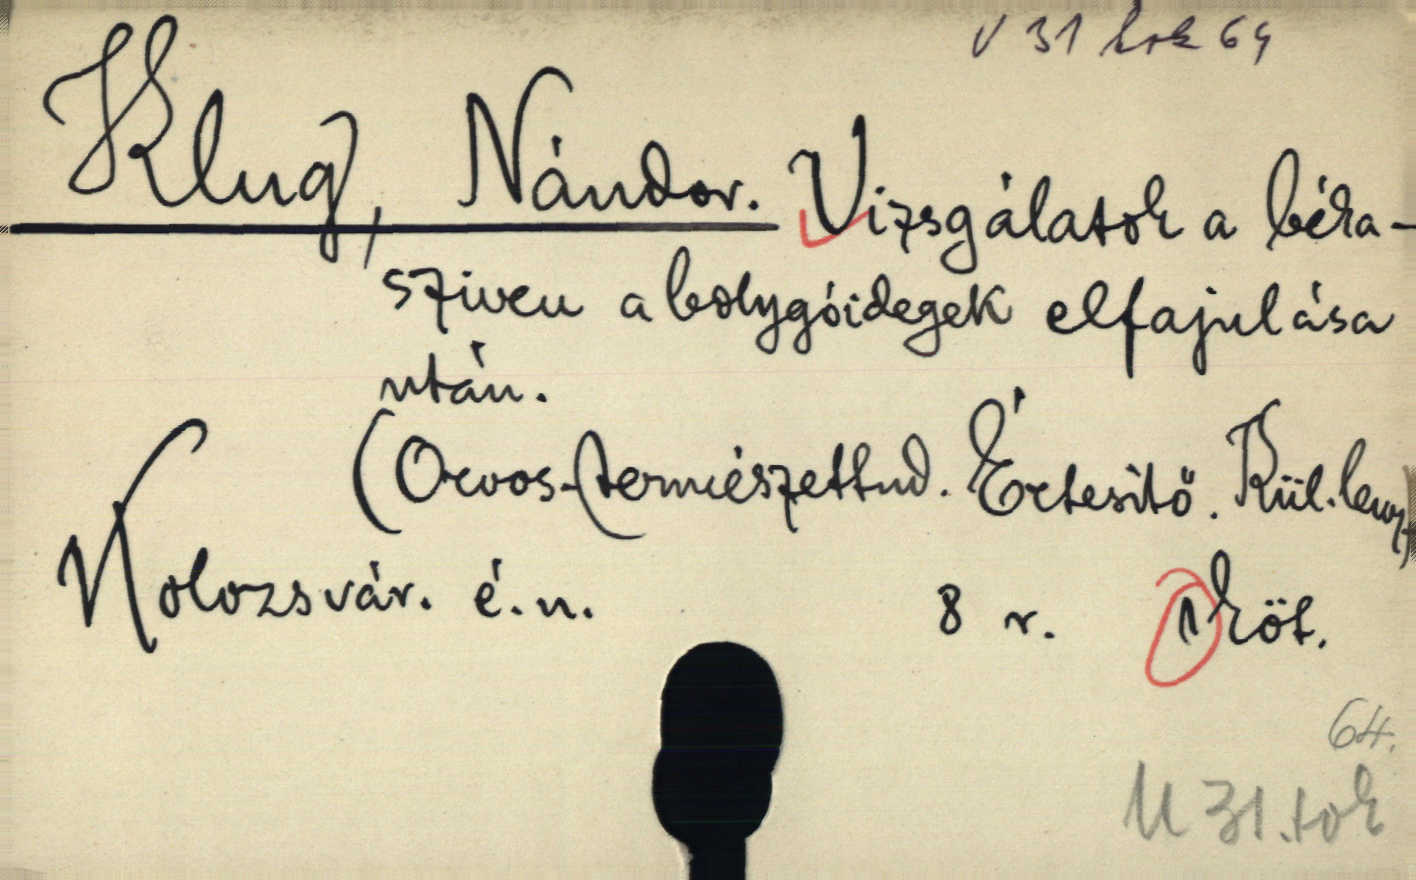 V 31 tok 64
Klug, Nándor. Vizsgálatok a béka-
sziven a bolygóidegek elfajulása
után.
(Orvos-természettud. Értesitő. Kül.leny.)
Kolozsvár. é.n. 8 r. 1 köt.
64.
U 31. tok